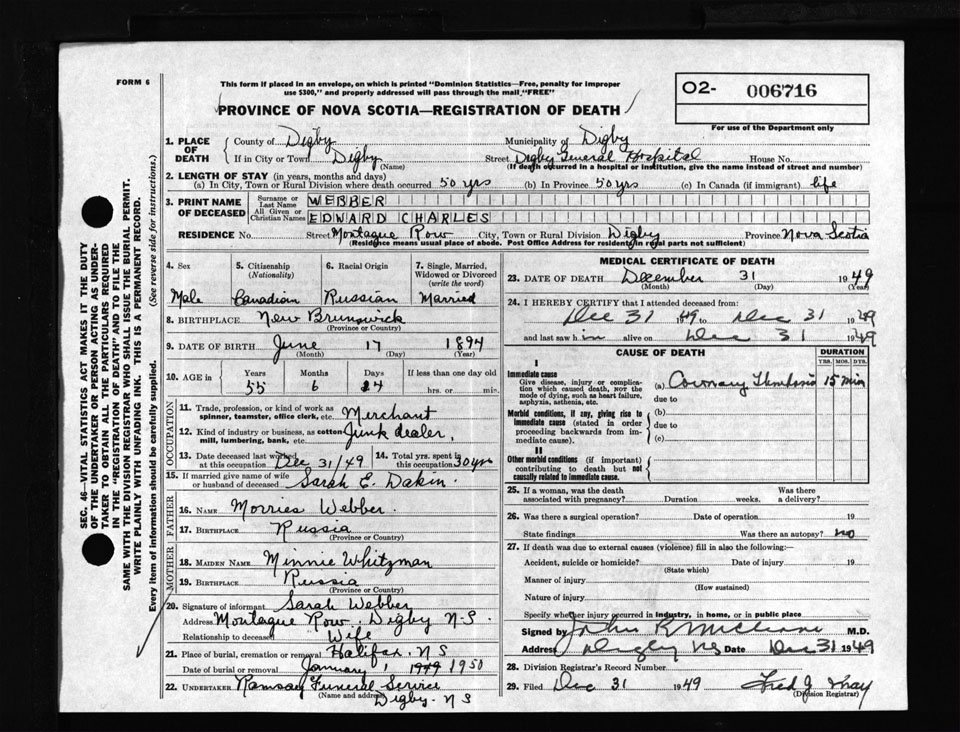 FORM 6
This form if placed in an envelope, on which is printed "Dominion Statistics—Free, penalty for improper
use $300," and properly addressed will pass through the mail "FREE"
PROVINCE OF NOVA SCOTIA—REGISTRATION OF DEATH
O2- 006716
For use of the Department only
SEC. 46—VITAL STATISTICS ACT MAKES IT THE DUTY
OF THE UNDERTAKER OR PERSON ACTING AS UNDER-
TAKER TO OBTAIN ALL THE PARTICULARS REQUIRED
IN THE "REGISTRATION OF DEATH" AND TO FILE THE
SAME WITH THE DIVISION REGISTRAR WHO SHALL ISSUE THE BURIAL PERMIT.
WRITE PLAINLY WITH UNFADING INK. THIS IS A PERMANENT RECORD.
Every item of information should be carefully supplied. (See reverse side for instructions.)
1. PLACE OF DEATH
County of Digby
Municipality of Digby
If in City or Town Digby (Name)
Street Digby General Hospital House No.
(If death occurred in a hospital or institution, give the name instead of street and number)
2. LENGTH OF STAY (in years, months and days)
(a) In City, Town or Rural Division where death occurred 50 yrs (b) In Province 50 yrs (c) In Canada (if immigrant) life
3. PRINT NAME OF DECEASED
Surname or Last Name WEBBER
All Given or Christian Names EDWARD CHARLES
RESIDENCE No. Street Montague Row City, Town or Rural Division Digby Province Nova Scotia
(Residence means usual place of abode. Post Office Address for residents in rural parts not sufficient)
4. Sex
Male
5. Citizenship (Nationality)
Canadian
6. Racial Origin
Russian
7. Single, Married, Widowed or Divorced (write the word)
Married
8. BIRTHPLACE New Brunswick
(Province or Country)
9. DATE OF BIRTH June 17 1894
(Month) (Day) (Year)
10. AGE in Years Months Days If less than one day old
55 6 14 hrs. or min.
OCCUPATION
11. Trade, profession, or kind of work as spinner, teamster, office clerk, etc. Merchant
12. Kind of industry or business, as cotton mill, lumbering, bank, etc. Junk dealer.
13. Date deceased last worked at this occupation Dec 31/49
14. Total yrs. spent in this occupation 30 yrs
15. If married give name of wife or husband of deceased Sarah E. Dakin.
FATHER
16. NAME Morries Webber.
17. BIRTHPLACE Russia
(Province or Country)
MOTHER
18. MAIDEN NAME Minnie Whitzman
19. BIRTHPLACE Russia
(Province or Country)
20. Signature of informant Sarah Webber
Address Montague Row. Digby N.S.
Relationship to deceased Wife
21. Place of burial, cremation or removal Halifax, N S
Date of burial or removal January 1 1949 1950
22. UNDERTAKER Ramsay Funeral Service
(Name and address) Digby. N S
MEDICAL CERTIFICATE OF DEATH
23. DATE OF DEATH December 31 1949
(Month) (Day) (Year)
24. I HEREBY CERTIFY that I attended deceased from:
Dec 31 1949 to Dec 31 1949
and last saw him alive on Dec 31 1949
CAUSE OF DEATH
DURATION
YRS. MOS. DYS.
I
Immediate cause
Give disease, injury or complication which caused death, NOT the mode of dying, such as heart failure, asphyxia, asthenia, etc.
(a) Coronary Thrombosis 15 min
due to
Morbid conditions, if any, giving rise to immediate cause (stated in order proceeding backwards from immediate cause).
(b)
due to
(c)
II
Other morbid conditions (if important) contributing to death but not causally related to immediate cause.
25. If a woman, was the death associated with pregnancy? Duration weeks. Was there a delivery?
26. Was there a surgical operation? Date of operation 19
State findings Was there an autopsy? no
27. If death was due to external causes (violence) fill in also the following:—
Accident, suicide or homicide? Date of injury 19
(State which)
Manner of injury
(How sustained)
Nature of injury
Specify whether injury occurred in industry, in home, or in public place
Signed by John R. M.D.
Address Digby NS Date Dec 31 1949
28. Division Registrar's Record Number
29. Filed Dec 31 1949 Fred J.
(Division Registrar)